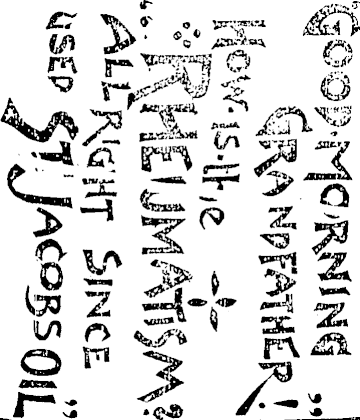 GOOD·MORNING
GRANDFATHER!"
How·is·the
RHEUMATISM?
"ALL RIGHT SINCE
USED ST JACOBS OIL"